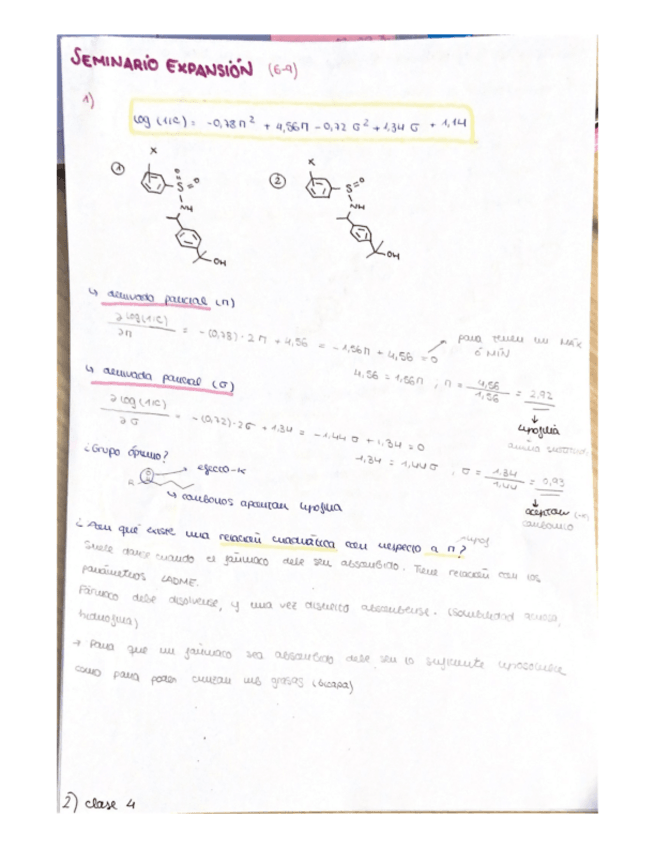 SEMINARIO EXPANSIÓN (6-9)
1)
log (1/C) = -0,78π² + 4,56π - 0,72 σ² + 1,34 σ + 1,14
① X O S O NH OH
② X S O NH OH
↳ derivada parcial (π)
∂ log(1/C) / ∂π = -(0,78)·2π + 4,56 = -1,56π + 4,56 = 0 → para tener un MÁX ó MÍN
4,56 = 1,56π, π = 4,56 / 1,56 = 2,92
↓
lipofilia
↳ derivada parcial (σ)
∂ log(1/C) / ∂σ = -(0,72)·2σ + 1,34 = -1,44σ + 1,34 = 0
1,34 = 1,44σ, σ = 1,34 / 1,44 = 0,93
↓
aceptan
carbonilo
¿Grupo óptimo?
R → efecto -K
↳ carbonos aportan lipofilia
¿Por qué existe una relación cuadrática con respecto a π?
Suele darse cuando el fármaco debe ser absorbido. Tiene relación con los
parámetros LADME.
Fármaco debe disolverse, y una vez disuelto absorberse. (Solubilidad acuosa,
hidrofilia)
→ Para que un fármaco sea absorbido debe ser lo suficiente liposoluble
como para poder cruzar las grasas (bicapa)
2) clase 4